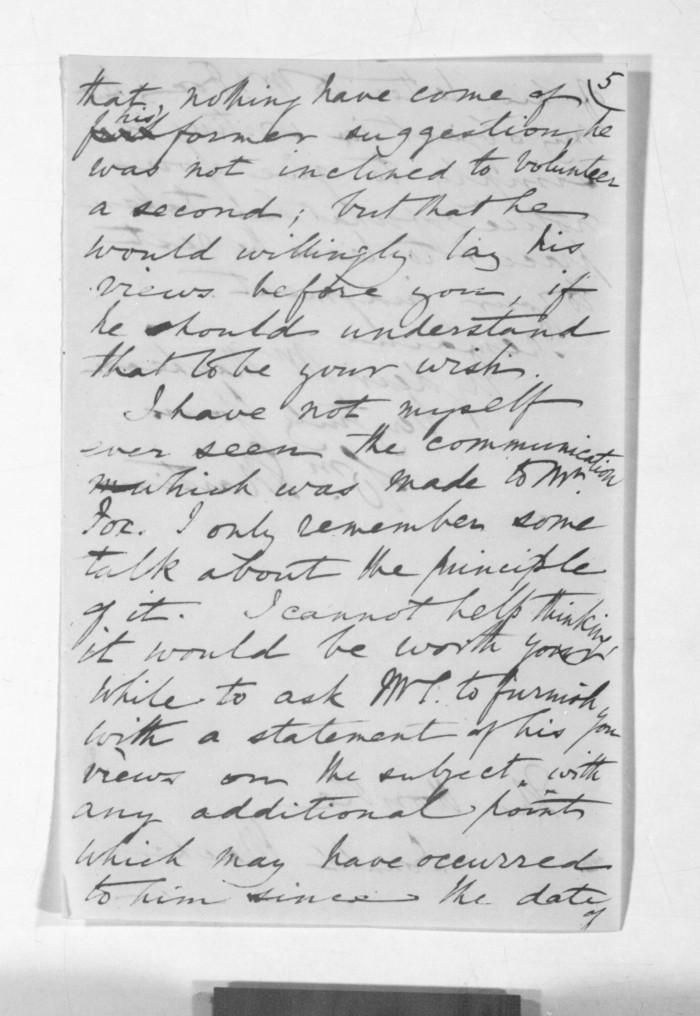 5
that, nothing have come of
his former suggestion, he
was not inclined to volunteer
a second; but that he
would willingly lay his
views before you, if
he should understand
that to be your wish.
I have not myself
ever seen the communication
which was made to Mr.
Fox. I only remember some
talk about the principle
of it. I cannot help thinking
it would be worth your
while to ask to furnish you
with a statement of his
views on the subject, with
any additional points
which may have occurred
to him since the date
of